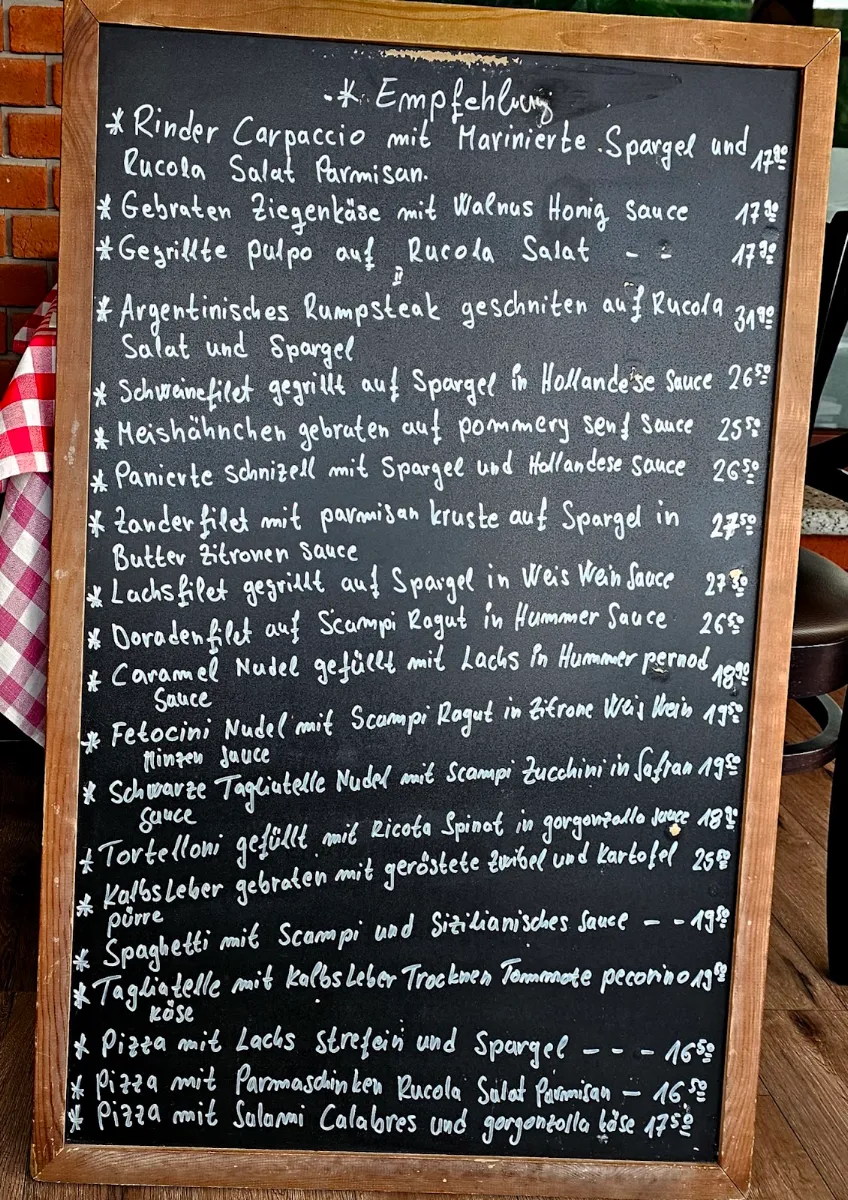 * Empfehlung
* Rinder Carpaccio mit Marinierte Spargel und 17⁹⁰
Rucola Salat Parmisan.
* Gebraten Ziegenkäse mit Walnus Honig Sauce 17⁹⁰
* Gegrillte pulpo auf Rucola Salat - - 17⁹⁰
* Argentinisches Rumpsteak geschniten auf Rucola 31⁹⁰
Salat und Spargel
* Schweinefilet gegrillt auf Spargel in Hollandese Sauce 26⁵⁰
* Meishähnchen gebraten auf pommery senf Sauce 25⁵⁰
* Panierte schnizell mit Spargel und Hollandese Sauce 26⁵⁰
* Zanderfilet mit parmisan kruste auf Spargel in 27⁵⁰
Butter Zitronen Sauce
* Lachsfilet gegrillt auf Spargel in Weis Wein Sauce
* Doradenfilet auf Scampi Ragut in Hummer Sauce 26⁵⁰
* Caramel Nudel gefüllt mit Lachs in Hummer pernod 18⁹⁰
Sauce
* Fetocini Nudel mit Scampi Ragut in Zitrone Weis Wein 19⁵⁰
Minzen Sauce
* Schwarze Tagliatelle Nudel mit Scampi Zucchini in Safran 19⁵⁰
Sauce
* Tortelloni gefüllt mit Ricota Spinat in gorgonzolla Sauce
* Kalbs Leber gebraten mit geröstete Zwibel und Kartofel
pürre
* Spaghetti mit Scampi und Sizilianisches Sauce - - 19⁵⁰
* Tagliatelle mit Kalbs Leber Trocknen Tommate pecorino
käse
* Pizza mit Lachs Strefein und Spargel - - - 16⁵⁰
* Pizza mit Parmaschinken Rucola Salat Parmisan - 16⁵⁰
* Pizza mit Salami Calabres und gorgonzolla käse 17⁵⁰